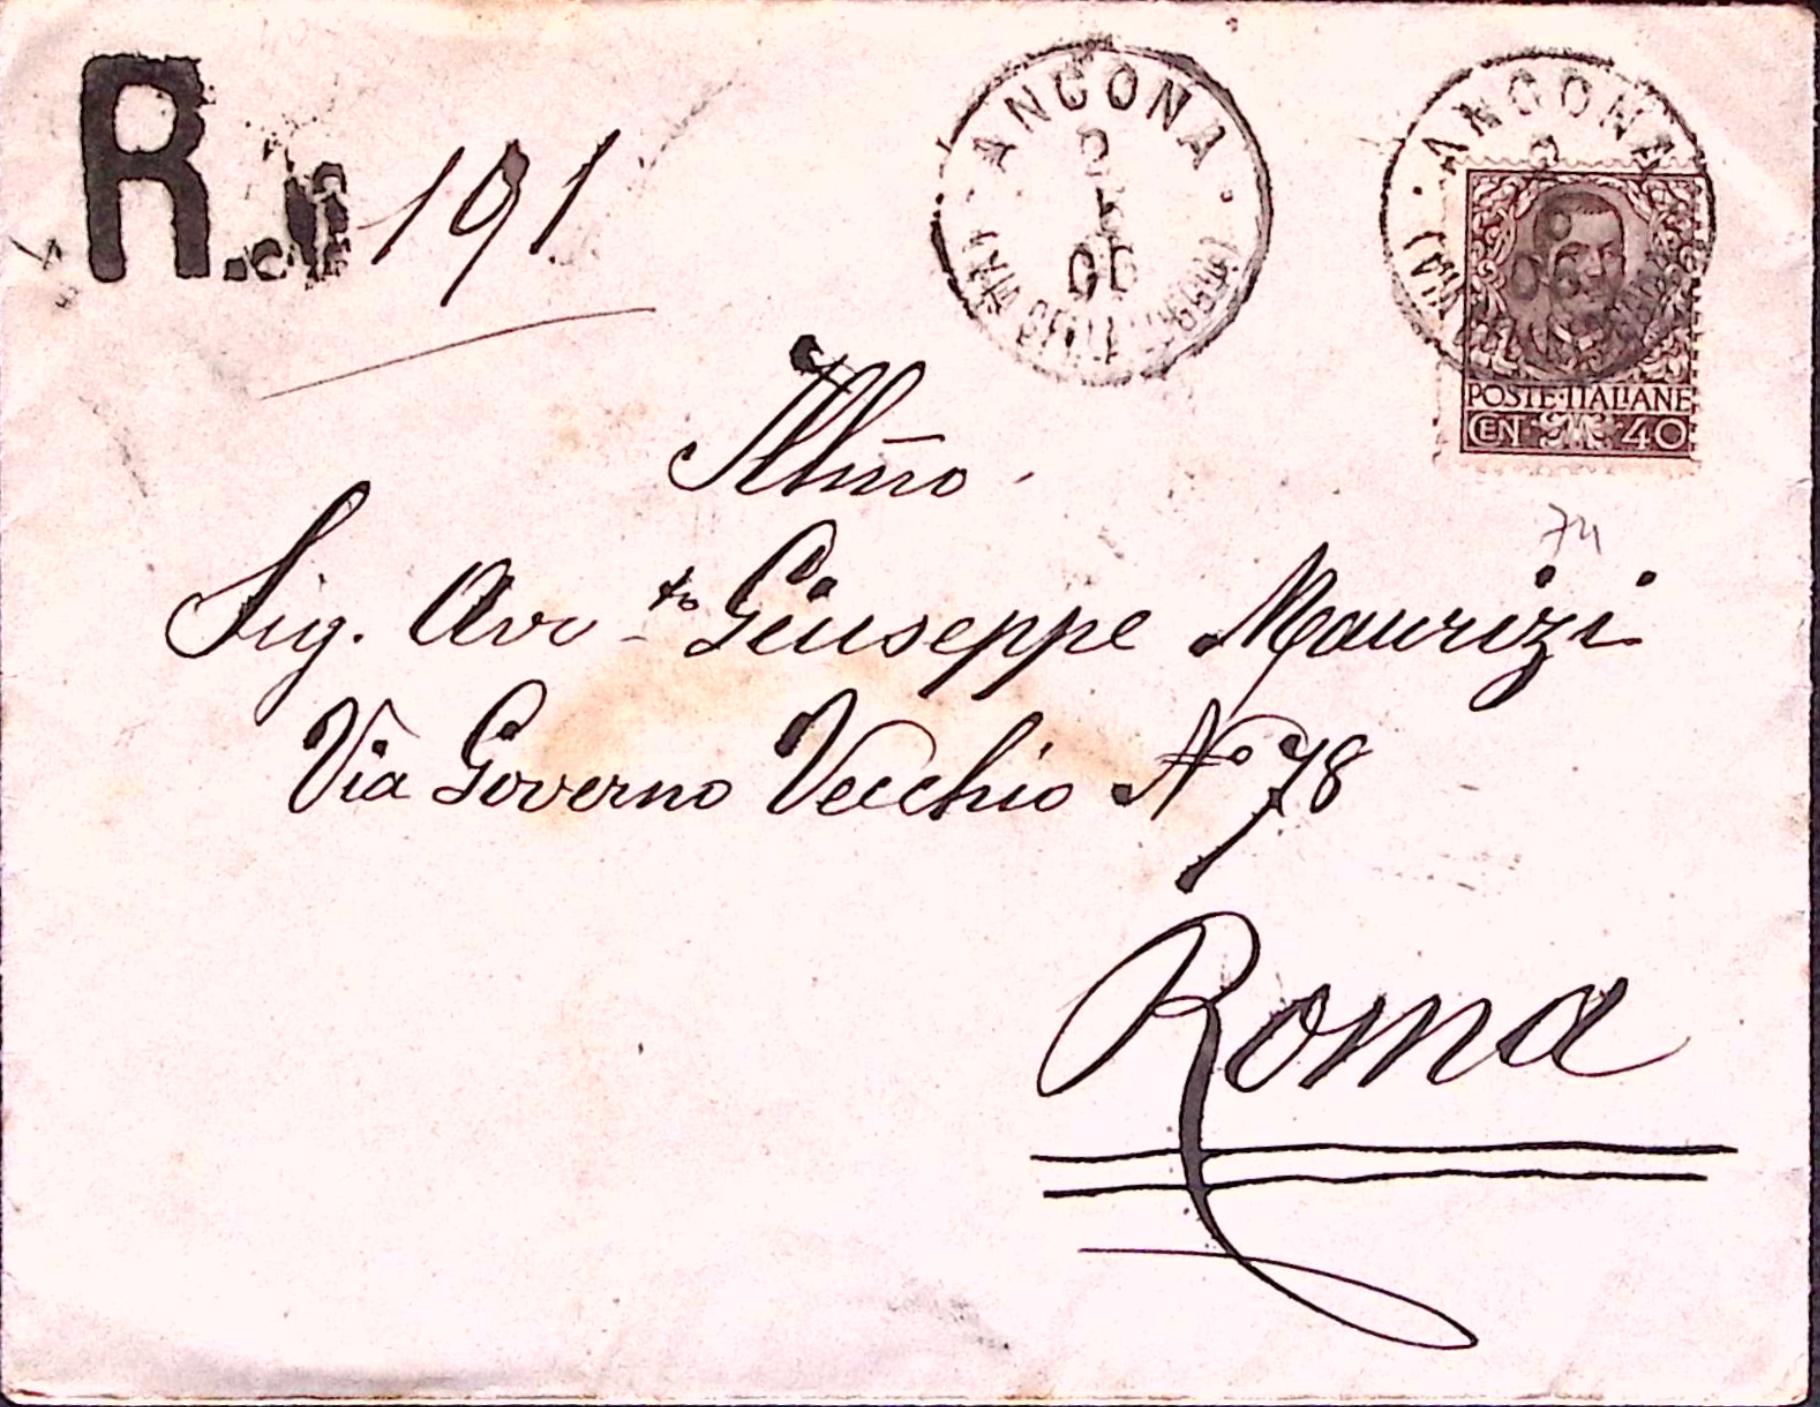 R. 191
ANCONA
ANCONA
POSTE·ITALIANE
CEN 40
74
Illmo
Sig. Avv to Giuseppe Maurizi
Via Governo Vecchio No 78
Roma